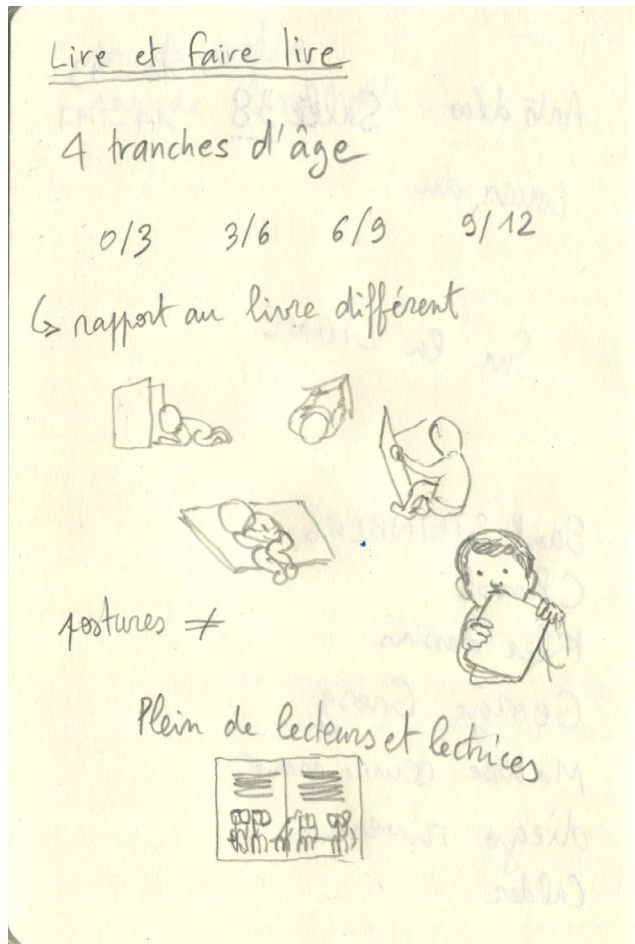 Lire et faire live
4 tranches d'âge
0/3 3/6 6/9 9/12
↳ rapport au livre différent
postures ≠
Plein de lecteurs et lectrices